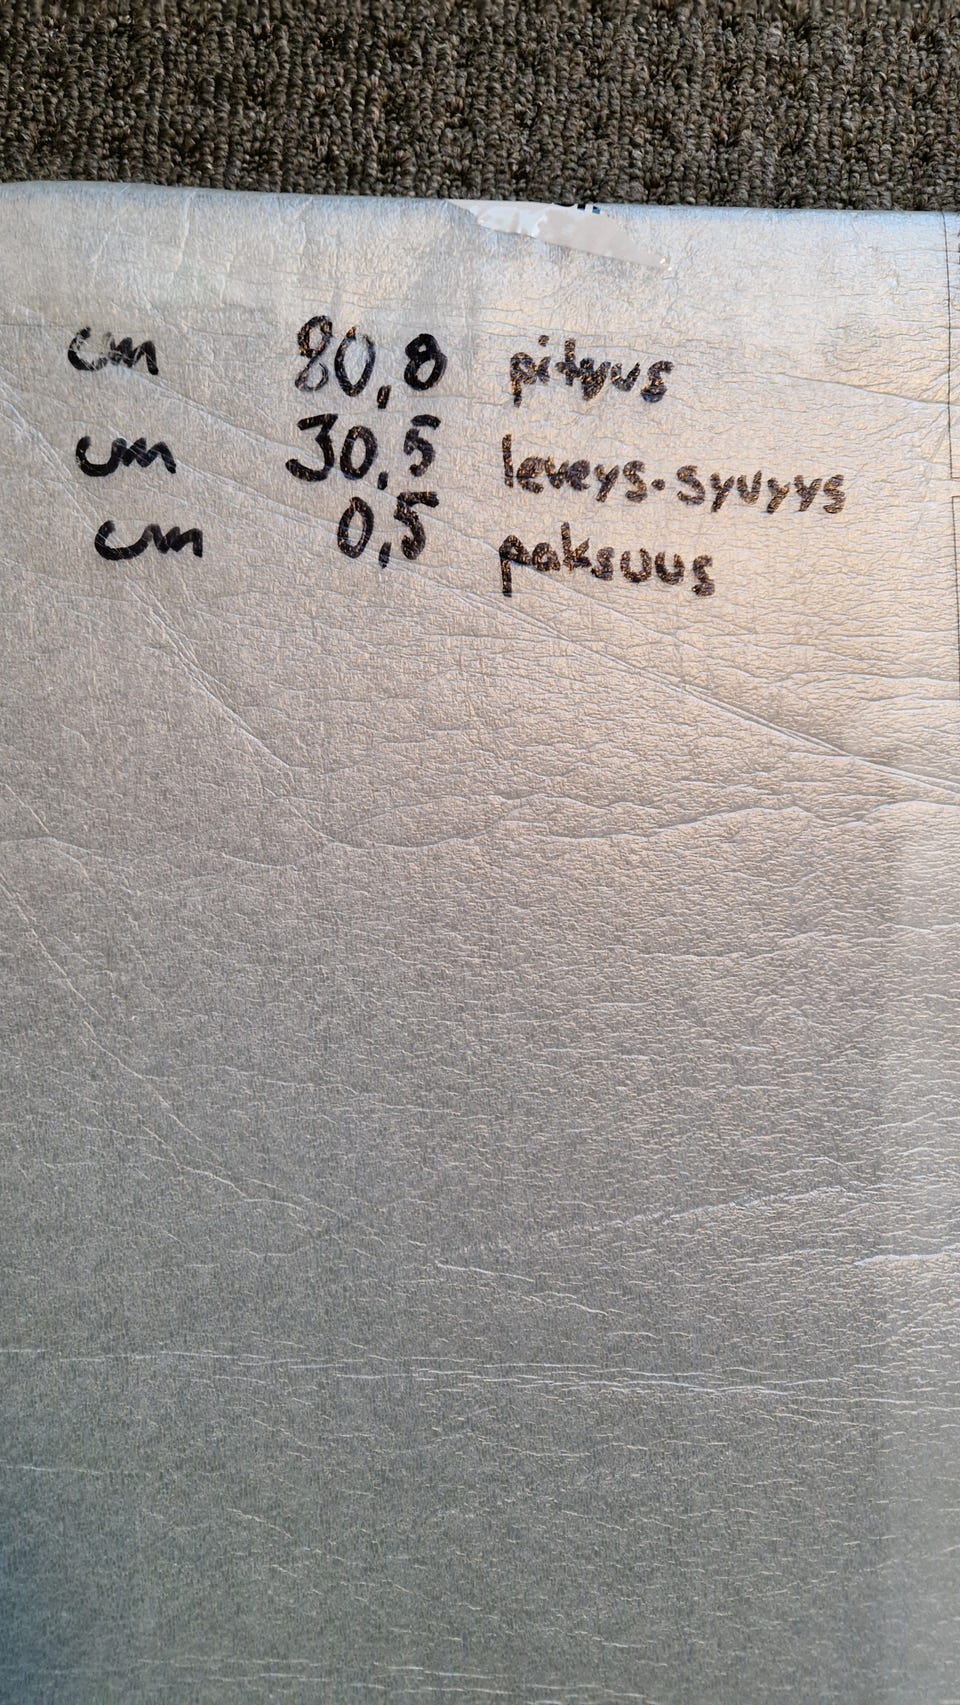 cm 80,8 pituus
cm 30,5 leveys-syvyys
cm 0,5 paksuus